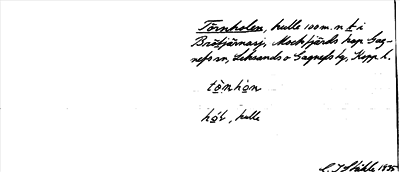 Törnholen, kulle 100 m. n t i
Brötjärnasj, Mockfjärds kap Gag-
nefs sn, Leksands o Gagnefs tg, Kopp. l.
tö̀nhòn
hòl, kulle
C. J Ståhle 1935